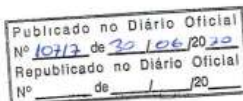 Publicado no Diário Oficial
Nº 10717 de 30 / 06 /2020
Republicado no Diário Oficial
Nº ____ de ___/___/20__